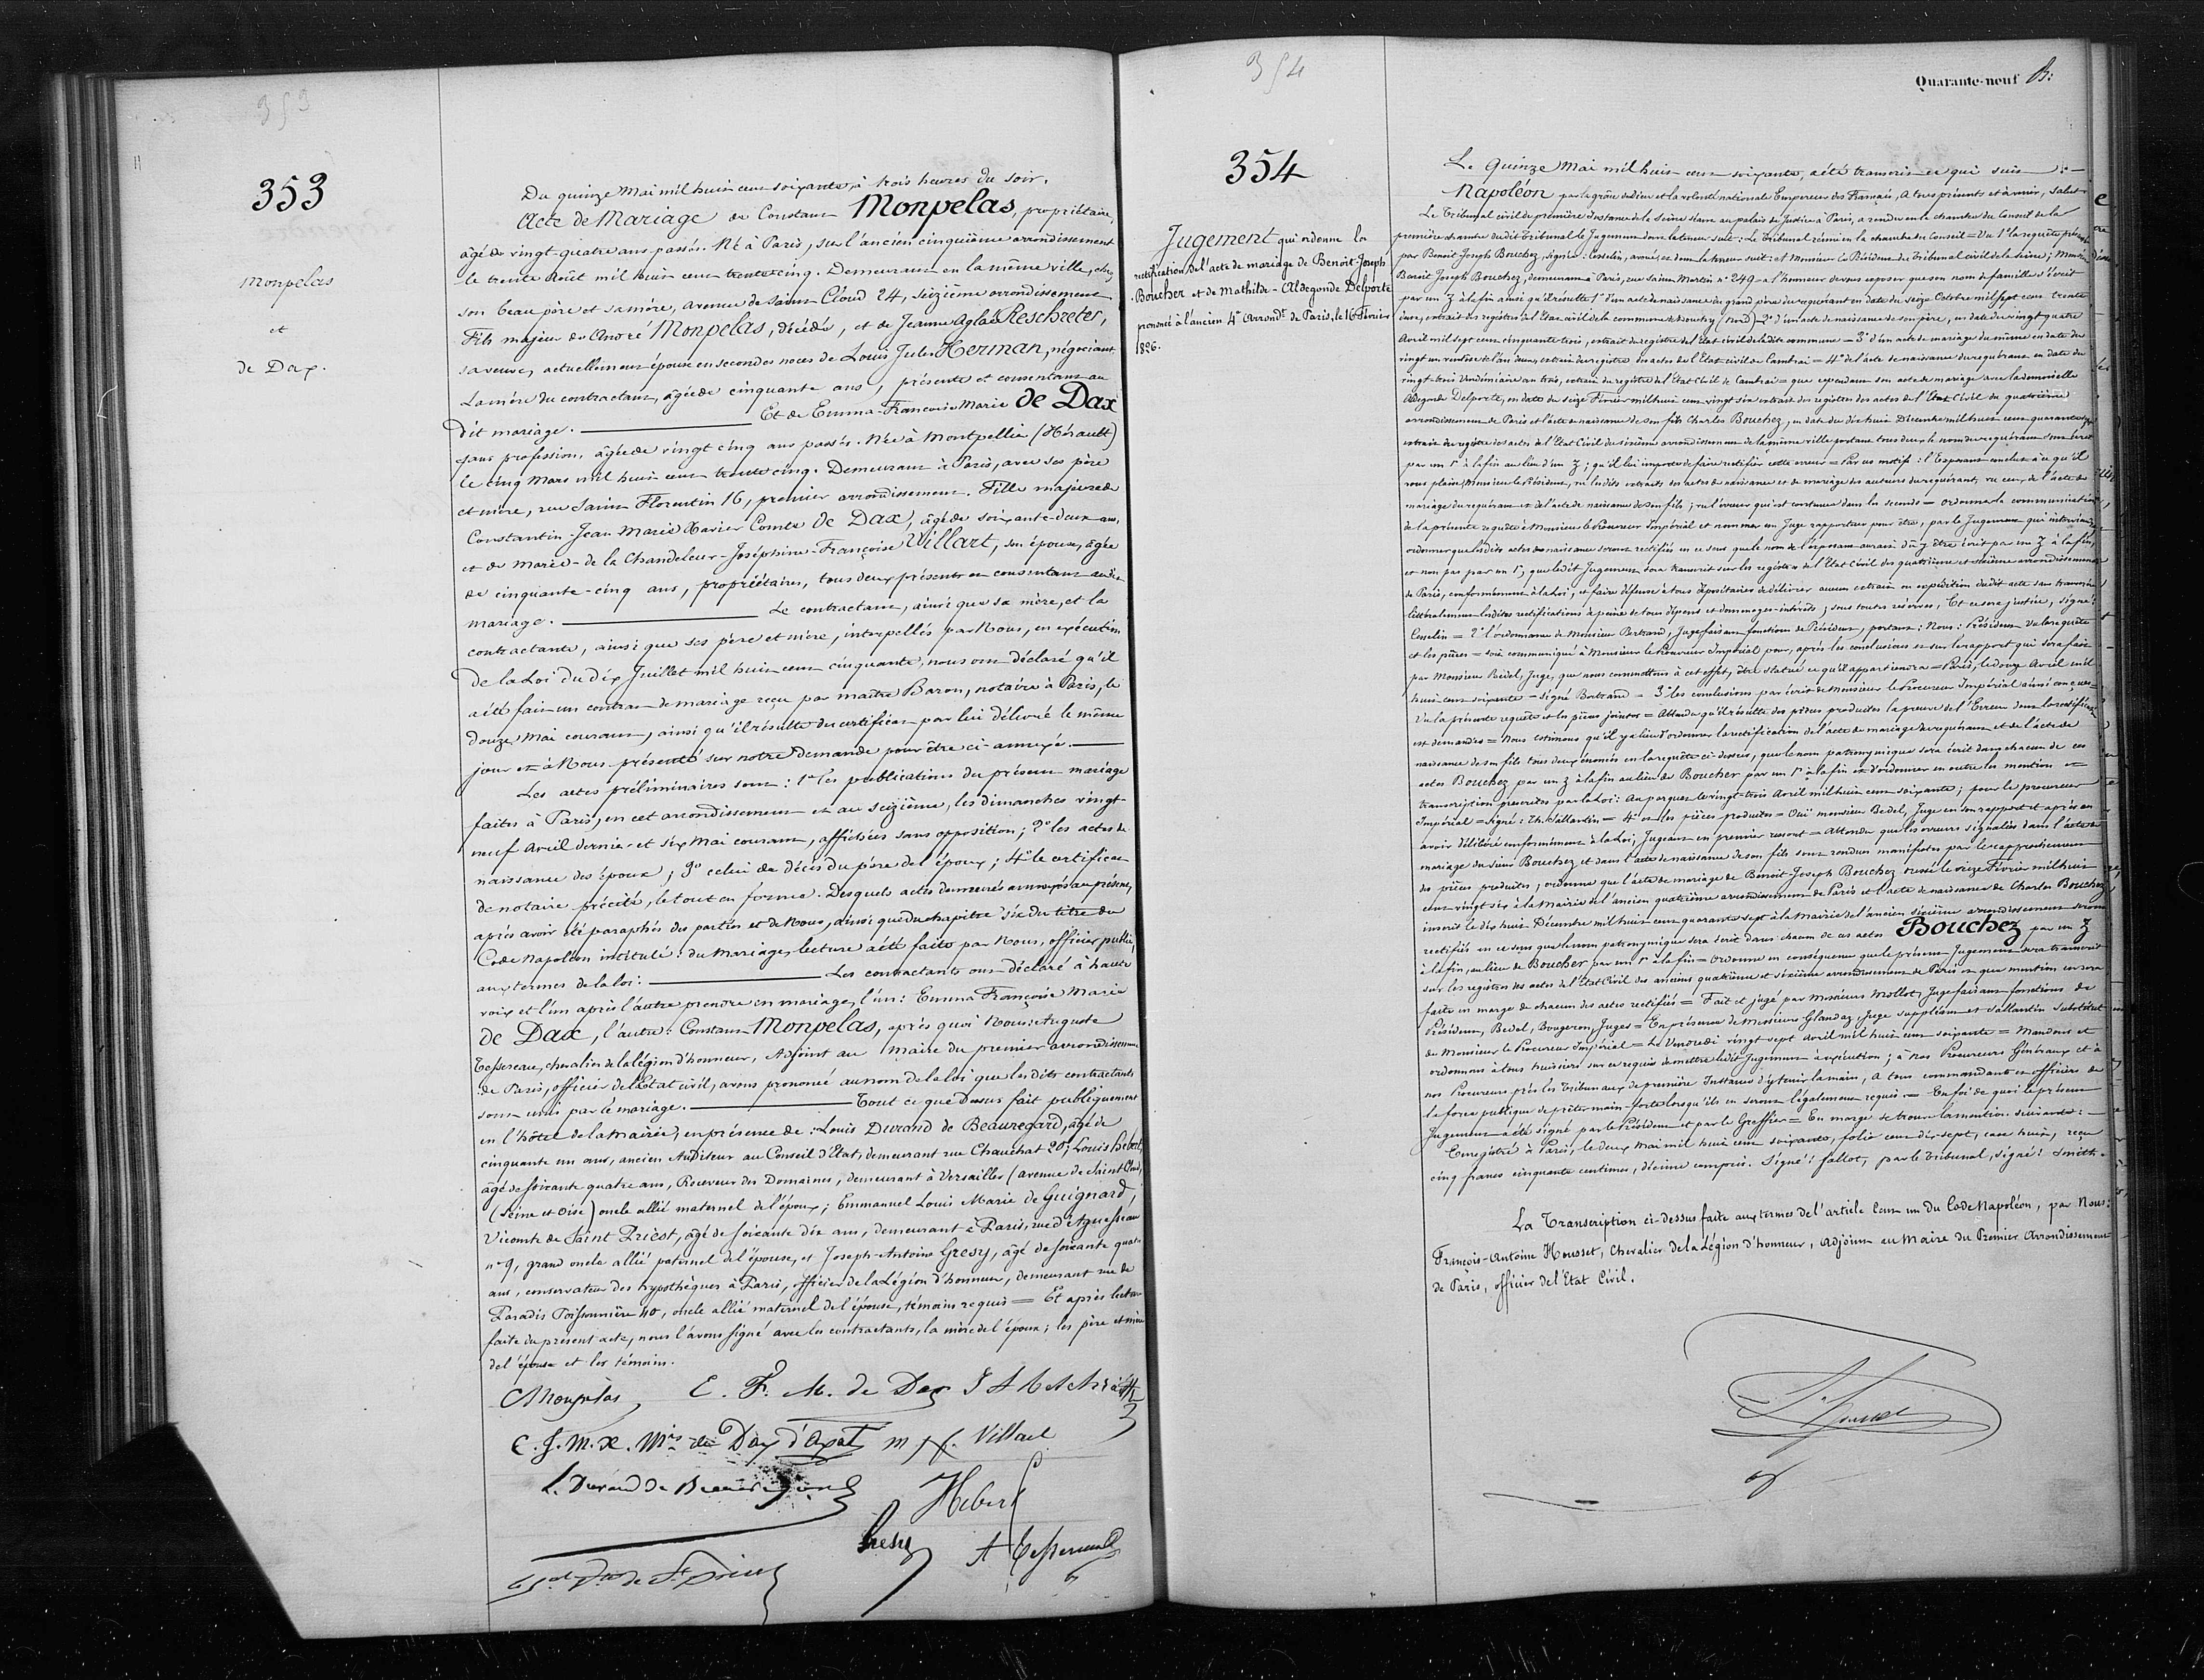 353
353
Monpelas
et
de Dax.
Du quinze Mai mil huit cent soixante, à trois heures du soir.
Acte de Mariage de Constant Monpelas, propriétaire,
âgé de vingt-quatre ans passés. Né à Paris, sur l'ancien cinquième arrondissement
le trente Août mil huit cent trente-cinq. Demeurant en la même ville, chez
son beau père et sa mère, avenue de Saint Cloud 24, seizième arrondissement
Fils majeur de André Monpelas, décédé, et de Jeanne Aglaé Reschreter,
sa veuve, actuellement épouse en secondes noces de Louis Jules Herman, négociant
La mère du contractant, âgée de cinquante ans, présente et consentant au
dit mariage. Et de Emma-Françoise Marie de Dax
sans profession, âgée de vingt cinq ans passés. Née à Montpellier (Hérault)
le cinq Mars mil huit cent trente cinq. Demeurant à Paris, avec ses père
et mère, rue Saint Florentin 16, premier arrondissement. Fille majeure de
Constantin-Jean Marie Xavier Comte de Dax, âgé de soixante-deux ans,
et de Marie-de la Chandeleur-Joséphine-Françoise Villart, son épouse, âgée
de cinquante-cinq ans, propriétaires, tous deux présents et consentant audit
mariage. Le contractant, ainsi que sa mère, et la
contractante, ainsi que ses père et mère, interpellés par Nous, en exécution
de la Loi du dix Juillet mil huit cent cinquante, nous ont déclaré qu'il
a été fait un contrat de mariage reçu par maître Baron, notaire à Paris, le
douze Mai courant, ainsi qu'il résulte du certificat par lui délivré le même
jour et à Nous présenté sur notre demande pour être ci-annexé.
Les actes préliminaires sont: 1° les publications du présent mariage
faites à Paris, en cet arrondissement et au seizième, les dimanches vingt-
neuf Avril dernier et six Mai courant, affichées sans opposition; 2° les actes de
naissance des époux; 3° celui de décès du père de l'époux; 4° le certificat
de notaire précité, le tout en forme. Desquels actes demeurés annexés au présent,
après avoir été paraphés des parties et de Nous, ainsi que du chapitre six du titre du
Code Napoléon intitulé: du Mariage, lecture a été faite par Nous, officier public,
aux termes de la loi. Les contractants ont déclaré à haute
voix et l'un après l'autre prendre en mariage, l'un: Emma Françoise Marie
de Dax, l'autre: Constant Monpelas, après quoi Nous: Auguste
Tessereau, chevalier de la Légion d'honneur, Adjoint au Maire du premier arrondissement
de Paris, officier de l'Etat civil, avons prononcé au nom de la loi que lesdits contractants
sont unis par le mariage. Tout ce que dessus fait publiquement
en l'hôtel de la Mairie, en présence de: Louis Durand de Beauregard, âgé de
cinquante un ans, ancien Auditeur au Conseil d'Etat, demeurant rue Chauchat 20; Louis Hebert,
âgé de soixante quatre ans, Receveur des Domaines, demeurant à Versailles (avenue de Saint Cloud,
(Seine et Oise) oncle allié maternel de l'époux; Emmanuel Louis Marie de Guignard,
Vicomte de Saint Priest, âgé de soixante dix ans, demeurant à Paris, rue d'Aguesseau
n° 9, grand oncle allié paternel de l'épouse, et Joseph-Antoine Gresy, âgé de soixante quatre
ans, conservateur des hypothèques à Paris, officier de la Légion d'honneur, demeurant rue de
Paradis Poissonnière 40, oncle allié maternel de l'épouse, témoins requis = Et après lecture
faite du présent acte, nous l'avons signé avec les contractants, la mère de l'époux; les père et mère
de l'épouse et les témoins.
C Monpelas E. F. M. de Dax
C. J. M. X. Mis de Dax d'Axat Villart
L. Durand de Beauregard Hebert
Gresy A Tessereau
de St Priest
354
Quarante-neuf
354
Jugement qui ordonne la
rectification de l'acte de mariage de Benoît Joseph
Boucher et de Mathilde-Aldegonde Delporte
prononcé à l'ancien 4e Arrondt de Paris, le 16 Février
1826.
Le Quinze Mai mil huit cent soixante, a été transcrit ce qui suit:
Napoléon par la grâce de Dieu et la volonté nationale Empereur des Français, à tous présents et à venir, salut
Le Tribunal civil de première instance de la Seine séant au palais de Justice à Paris, a rendu en la chambre du Conseil de la
première chambre dudit Tribunal le Jugement dont la teneur suit: Le Tribunal réuni en la chambre du Conseil = Vu 1° la requête présentée
par Benoît Joseph Bouchez, signée: Cesselin, avoué, et dont la teneur suit: A Monsieur le Président du Tribunal civil de la Seine; Monsieur
Benoît Joseph Bouchez, demeurant à Paris, rue Saint Martin n° 249 = a l'honneur de vous exposer que son nom de famille s'écrit
par un Z à la fin ainsi qu'il résulte 1° d'un acte de naissance du grand père du requérant en date du seize Octobre mil sept cent trente
deux, extrait des registres de l'Etat civil de la commune de (Nord) 2° d'un acte de naissance de son père, en date du vingt quatre
Avril mil sept cent cinquante trois, extrait du registre de l'Etat civil de ladite commune = 3° d'un acte de mariage du même en date du
vingt un ventôse de l'an deux, extrait du registre des actes de l'Etat civil de Cambrai = 4° de l'acte de naissance du requérant en date du
vingt-trois Vendémiaire an trois, extrait du registre de l'Etat Civil de Cambrai = que cependant son acte de mariage avec la demoiselle
Aldegonde Delporte, en date du seize Février mil huit cent vingt six extrait des registres des actes de l'Etat Civil du quatrième
arrondissement de Paris et l'acte de naissance de son fils Charles Bouchez, en date du dix huit Décembre mil huit cent quarante sept
extrait du registre des actes de l'Etat Civil du sixième arrondissement de la même ville portent tous deux le nom du requérant comme écrit
par un r à la fin au lieu d'un Z; qu'il lui importe de faire rectifier cette erreur = Par ces motifs: l'Exposant conclut à ce qu'il
vous plaise, Monsieur le Président, vu lesdits extraits des actes de naissance et de mariage des auteurs du requérant, vu ceux de l'acte de
mariage du requérant et de l'acte de naissance de son fils; vu l'erreur qui est contenue dans la seconde = ordonner la communication
de la présente requête à Monsieur le Procureur Impérial et nommer un Juge rapporteur pour être, par le Jugement qui interviendra
ordonner que lesdits actes de naissance seront rectifiés en ce sens que le nom de l'exposant aurait dû y être écrit par un Z à la fin,
et non pas par un r, que ledit Jugement sera transcrit sur les registres de l'Etat civil des quatrième et sixième arrondissements
de Paris, conformément à la loi, et faire défense à tous dépositaires de délivrer aucun extrait ou expédition dudit acte sans transcrire
littéralement lesdites rectifications à peine de tous dépens et dommages-intérêts; sous toutes réserves, Et ce sera justice, signé:
Cesselin = 2° l'ordonnance de Monsieur Bertrand, Juge faisant fonctions de Président, portant: Nous: Président Vu la requête
et les pièces = soit communiqué à Monsieur le Procureur Impérial pour, après les conclusions et sur le rapport qui sera fait
par Monsieur Bedel, Juge, que nous commettons à cet effet, être statué ce qu'il appartiendra = Paris, le douze Avril mil
huit cent soixante = signé Bertrand = 3° les conclusions par écrit de Monsieur le Procureur Impérial ainsi conçues =
Vu la présente requête et les pièces jointes = Attendu qu'il résulte des pièces produites la preuve de l'Erreur dont la rectification
est demandée = Nous estimons qu'il y a lieu d'ordonner la rectification de l'acte de mariage du requérant et de l'acte de
naissance de son fils tous deux énoncés en la requête ci-dessus, que le nom patronymique sera écrit dans chacun de ces
actes Bouchez par un Z à la fin au lieu de Boucher par un r à la fin et d'ordonner en outre les mention et
transcription prescrites par la Loi: Au parquet le vingt-trois Avril mil huit cent soixante; pour le procureur
Impérial = signé: Sallantin = 4° et les pièces produites = Ouï monsieur Bedel, Juge en son rapport et après en
avoir délibéré conformément à la Loi; Jugeant en premier ressort = Attendu que les erreurs signalées dans l'acte de
mariage du sieur Bouchez et dans l'acte de naissance de son fils sont rendues manifestes par le rapprochement
des pièces produites, ordonne que l'acte de mariage de Benoît Joseph Bouchez dressé le seize Février mil huit
cent vingt six à la Mairie de l'ancien quatrième arrondissement de Paris et l'acte de naissance de Charles Bouchez
inscrit le dix huit Décembre mil huit cent quarante sept à la Mairie de l'ancien sixième arrondissement seront
rectifiés en ce sens que le nom patronymique sera écrit dans chacun de ces actes Bouchez par un Z
à la fin, au lieu de Boucher par un r à la fin = Ordonne en conséquence que le présent Jugement sera transcrit
sur les registres des actes de l'Etat Civil des anciens quatrième et sixième arrondissements de Paris et que mention en sera
faite en marge de chacun des actes rectifiés = Fait et jugé par Messieurs Mollot, Juge faisant fonctions de
Président, Bedel, Bougeron, Juges = En présence de Messieurs Glandaz, Juge suppléant et Sallantin substitut
de Monsieur le Procureur Impérial = Le Vendredi vingt sept Avril mil huit cent soixante = Mandons et
ordonnons à tous huissiers sur ce requis de mettre ledit Jugement à exécution; à nos Procureurs Généraux et à
nos Procureurs près les Tribunaux de première Instance d'y tenir la main, à tous commandants et officiers de
la force publique de prêter main-forte lorsqu'ils en seront légalement requis = En foi de quoi le présent
Jugement a été signé par le Président et par le Greffier = En marge se trouve la mention suivante:
Enregistré à Paris, le deux Mai mil huit cent soixante, folio cent dix-sept, case huit, reçu
cinq francs cinquante centimes, décime compris. Signé: fallot, par le Tribunal, signé: Smith.
La Transcription ci-dessus faite aux termes de l'article Cent un du Code Napoléon, par Nous:
François-Antoine Housset, Chevalier de la Légion d'honneur, Adjoint au Maire du Premier Arrondissement
de Paris, officier de l'Etat Civil.